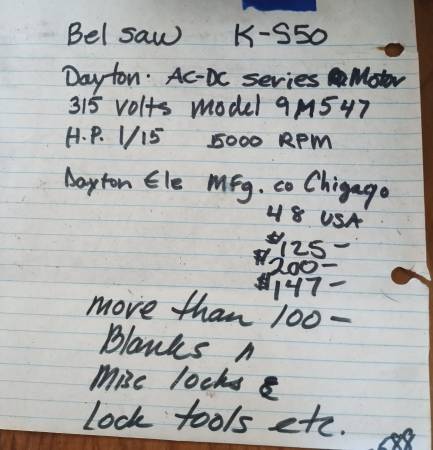 Bel saw K-S50
Dayton. AC-DC series Motor
315 volts model 9M547
H.P. 1/15 5000 RPM
Dayton Ele Mfg. co Chigago
48 USA
$125-
$200-
$147-
more than 100-
Blanks
Misc locks &
Lock tools etc.